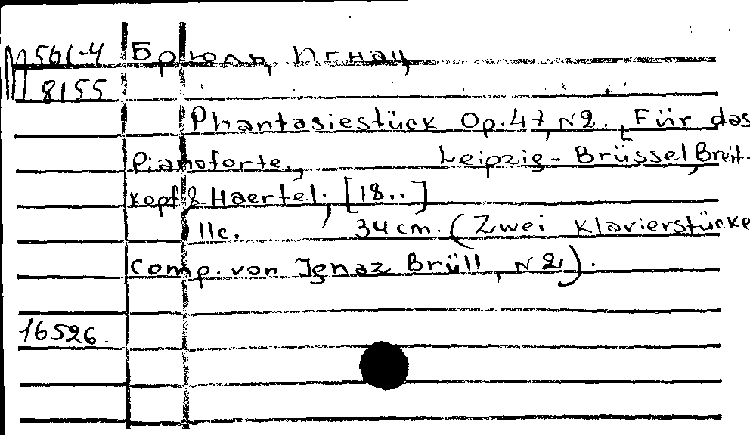 М 561-4 Брюль, Игнац
8155
Phantasiestück Op. 47, N2. Für das
Pianoforte. Leipzig-Brüssel, Breit-
kopf & Haertel, [18..]
11c. 34 cm. (Zwei Klavierstücke
comp. von Ignaz Brüll, N2).
16526